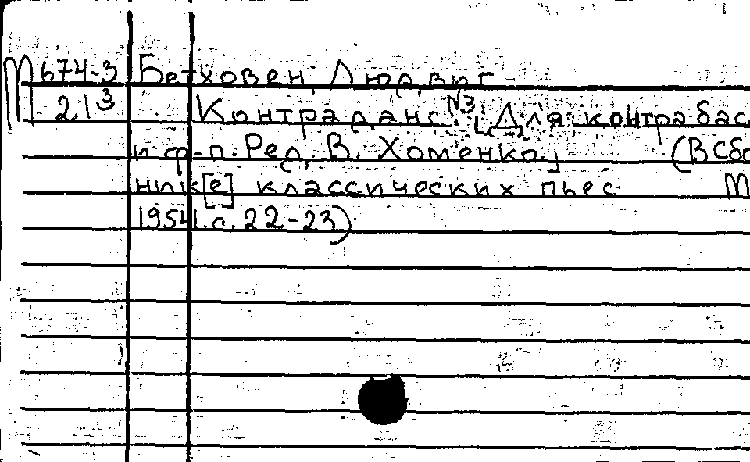 М 674-3 Бетховен, Людвиг
21³ Контраданс №3. [Для контрабас
и ф-п. Ред. В. Хоменко.] (В Сбо
ник[е] классических пьес М
1954. с. 22-23)